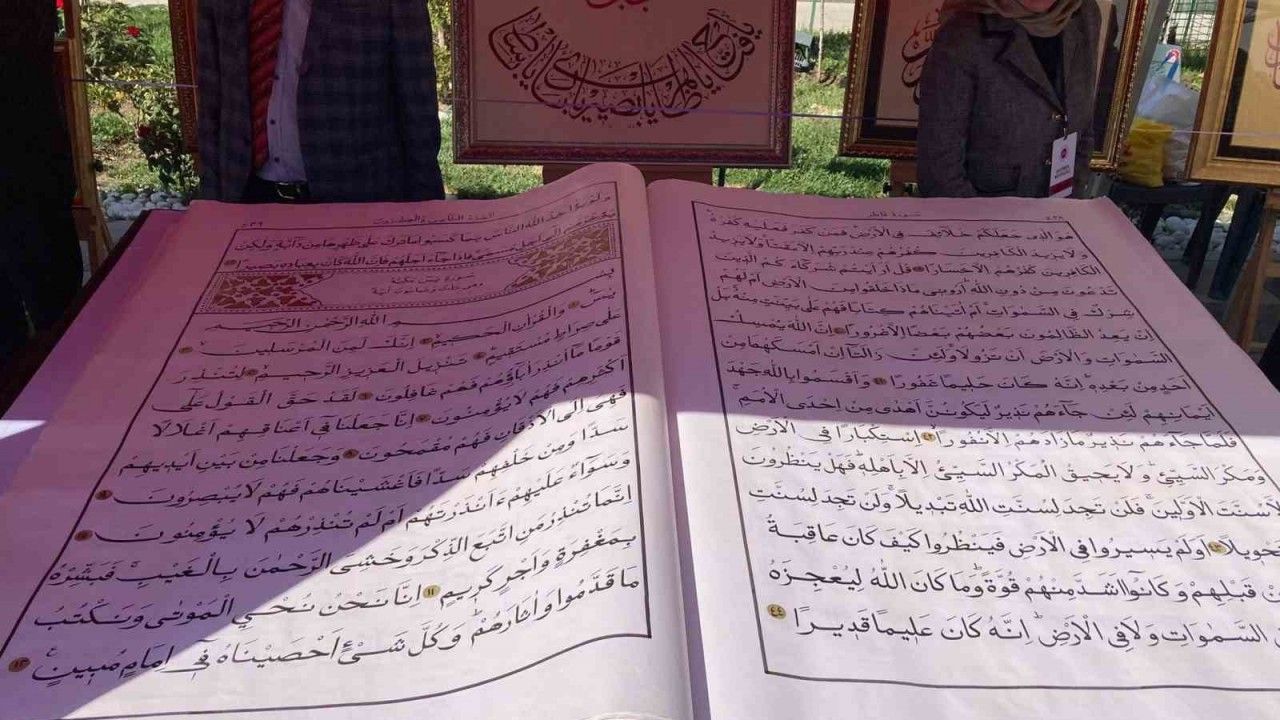 سورة فاطر
٤٣٨
هُوَ الَّذِي جَعَلَكُمْ خَلَائِفَ فِي الْأَرْضِ فَمَنْ كَفَرَ فَعَلَيْهِ كُفْرُهُ
وَلَا يَزِيدُ الْكَافِرِينَ كُفْرُهُمْ عِنْدَ رَبِّهِمْ إِلَّا مَقْتًا وَلَا يَزِيدُ
الْكَافِرِينَ كُفْرُهُمْ إِلَّا خَسَارًا قُلْ أَرَأَيْتُمْ شُرَكَاءَكُمُ الَّذِينَ
تَدْعُونَ مِنْ دُونِ اللَّهِ أَرُونِي مَاذَا خَلَقُوا مِنَ الْأَرْضِ أَمْ لَهُمْ
شِرْكٌ فِي السَّمٰوَاتِ أَمْ آتَيْنَاهُمْ كِتَابًا فَهُمْ عَلَى بَيِّنَتٍ مِنْهُ بَلْ
إِنْ يَعِدُ الظَّالِمُونَ بَعْضُهُمْ بَعْضًا إِلَّا غُرُورًا إِنَّ اللَّهَ يُمْسِكُ
السَّمٰوَاتِ وَالْأَرْضَ أَنْ تَزُولَا وَلَئِنْ زَالَتَا إِنْ أَمْسَكَهُمَا مِنْ
أَحَدٍ مِنْ بَعْدِهِ إِنَّهُ كَانَ حَلِيمًا غَفُورًا وَأَقْسَمُوا بِاللَّهِ جَهْدَ
أَيْمَانِهِمْ لَئِنْ جَاءَهُمْ نَذِيرٌ لَيَكُونُنَّ أَهْدَى مِنْ إِحْدَى الْأُمَمِ
فَلَمَّا جَاءَهُمْ نَذِيرٌ مَا زَادَهُمْ إِلَّا نُفُورًا اسْتِكْبَارًا فِي الْأَرْضِ
وَمَكْرَ السَّيِّئِ وَلَا يَحِيقُ الْمَكْرُ السَّيِّئُ إِلَّا بِأَهْلِهِ فَهَلْ يَنْظُرُونَ
إِلَّا سُنَّتَ الْأَوَّلِينَ فَلَنْ تَجِدَ لِسُنَّتِ اللَّهِ تَبْدِيلًا وَلَنْ تَجِدَ لِسُنَّتِ
تَحْوِيلًا أَوَلَمْ يَسِيرُوا فِي الْأَرْضِ فَيَنْظُرُوا كَيْفَ كَانَ عَاقِبَةُ
مِنْ قَبْلِهِمْ وَكَانُوا أَشَدَّ مِنْهُمْ قُوَّةً وَمَا كَانَ اللَّهُ لِيُعْجِزَهُ
فِي السَّمٰوَاتِ وَلَا فِي الْأَرْضِ إِنَّهُ كَانَ عَلِيمًا قَدِيرًا ٤٤
الجزء الثاني والعشرون
٤٣٩
وَلَوْ يُؤَاخِذُ اللَّهُ النَّاسَ بِمَا كَسَبُوا مَا تَرَكَ عَلَى ظَهْرِهَا مِنْ دَابَّةٍ وَلٰكِنْ
يُؤَخِّرُهُمْ إِلَى أَجَلٍ مُسَمًّى فَإِذَا جَاءَ أَجَلُهُمْ فَإِنَّ اللَّهَ كَانَ بِعِبَادِهِ بَصِيرًا
سورة يس مكية
وهي ثلاث وثمانون آية
بِسْمِ اللَّهِ الرَّحْمٰنِ الرَّحِيمِ
يٰسٓ وَالْقُرْآنِ الْحَكِيمِ إِنَّكَ لَمِنَ الْمُرْسَلِينَ
عَلَى صِرَاطٍ مُسْتَقِيمٍ تَنْزِيلَ الْعَزِيزِ الرَّحِيمِ لِتُنْذِرَ
قَوْمًا مَا أُنْذِرَ آبَاؤُهُمْ فَهُمْ غَافِلُونَ لَقَدْ حَقَّ الْقَوْلُ عَلَى
أَكْثَرِهِمْ فَهُمْ لَا يُؤْمِنُونَ إِنَّا جَعَلْنَا فِي أَعْنَاقِهِمْ أَغْلَالًا
فَهِيَ إِلَى الْأَذْقَانِ فَهُمْ مُقْمَحُونَ وَجَعَلْنَا مِنْ بَيْنِ أَيْدِيهِمْ
سَدًّا وَمِنْ خَلْفِهِمْ سَدًّا فَأَغْشَيْنَاهُمْ فَهُمْ لَا يُبْصِرُونَ
وَسَوَاءٌ عَلَيْهِمْ ءَأَنْذَرْتَهُمْ أَمْ لَمْ تُنْذِرْهُمْ لَا يُؤْمِنُونَ
إِنَّمَا تُنْذِرُ مَنِ اتَّبَعَ الذِّكْرَ وَخَشِيَ الرَّحْمٰنَ بِالْغَيْبِ فَبَشِّرْهُ
بِمَغْفِرَةٍ وَأَجْرٍ كَرِيمٍ ١١ إِنَّا نَحْنُ نُحْيِي الْمَوْتٰى وَنَكْتُبُ
مَا قَدَّمُوا وَآثَارَهُمْ وَكُلَّ شَيْءٍ أَحْصَيْنَاهُ فِي إِمَامٍ مُبِينٍ ١٢